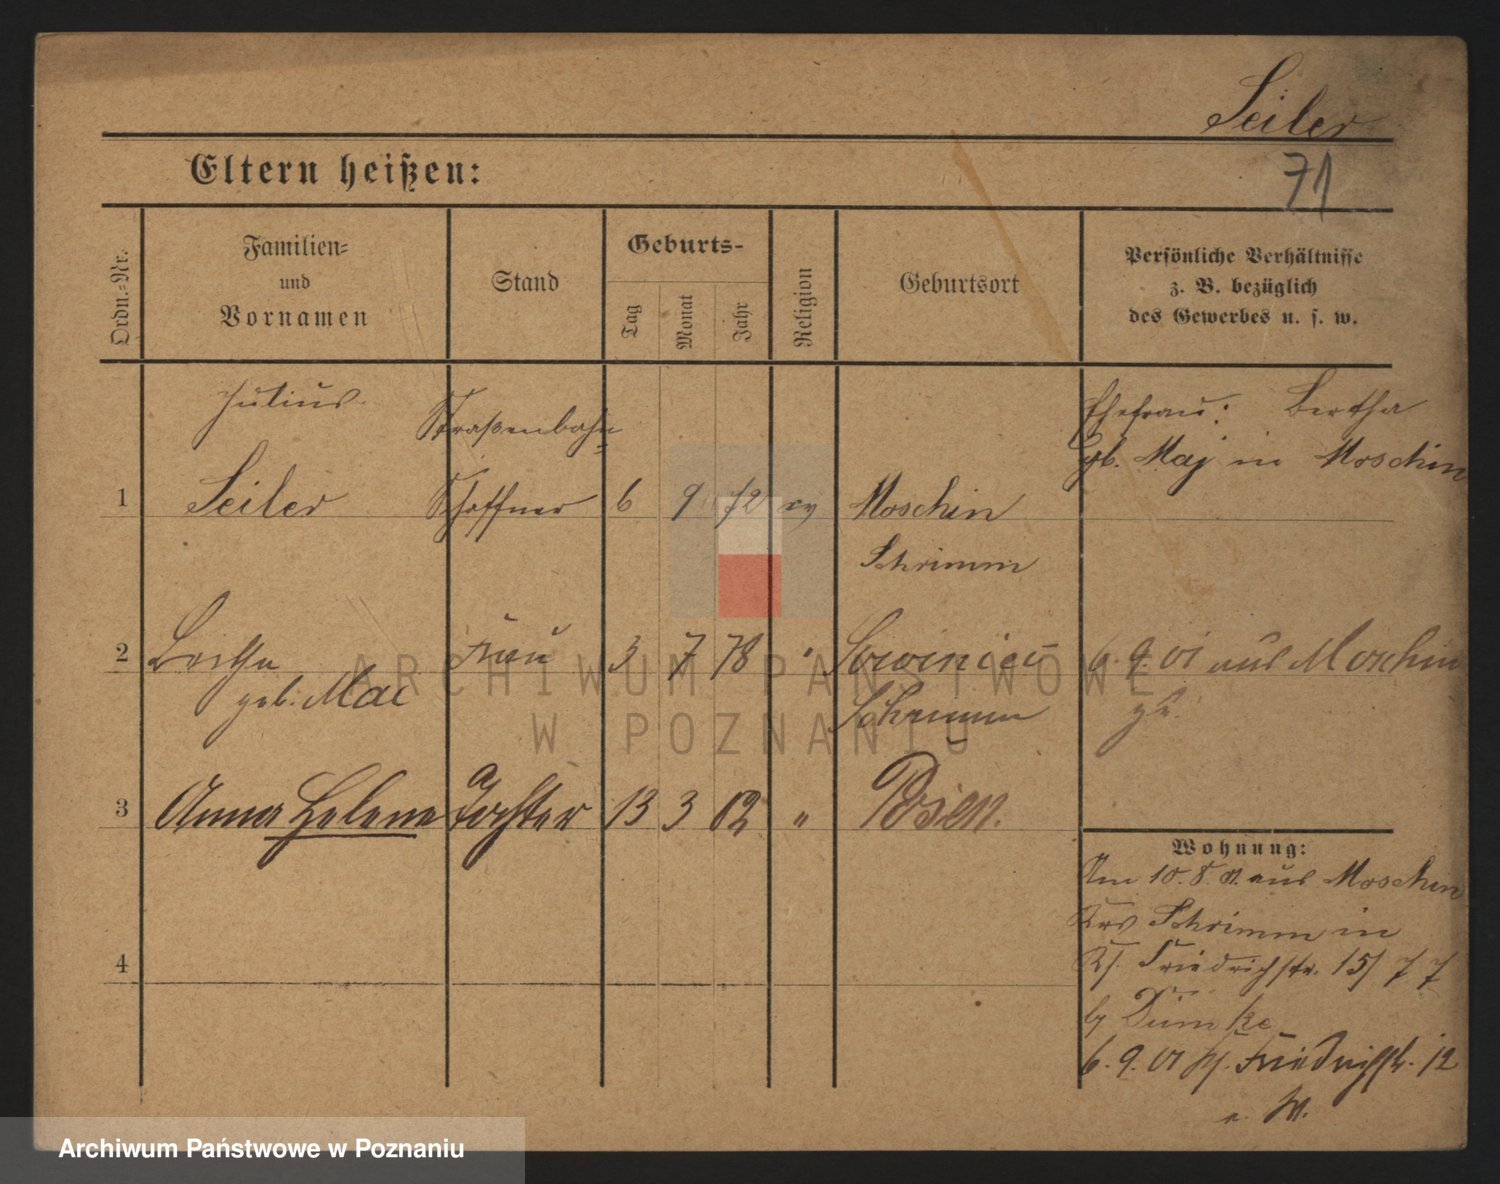 Seiler
71
Eltern heißen:
Ordn.-Nr.
Familien-
und
Vornamen
Stand
Geburts-
Tag
Monat
Jahr
Religion
Geburtsort
Persönliche Verhältnisse
z. B. bezüglich
des Gewerbes u. s. w.
Julius
Straßenbahn
Ehefrau: Bertha
geb. Maj in Moschin
1 Seiler Schaffner 6 9 72 ev Moschin
Schrimm
2 Bertha Frau 3 7 78 " 6.9.01 aus Moschin
geb. Mai Schrimm
ARCHIWUM PAŃSTWOWE
W POZNANIU
3 Anna Helene Tochter 13 3 02 " Posen.
Wohnung:
Am 10.8.01. aus Moschin
Krs Schrimm in
Friedrichstr. 15/
4
by Dümke
6.9.01 Friedrichstr. 12
e. W.
Archiwum Państwowe w Poznaniu